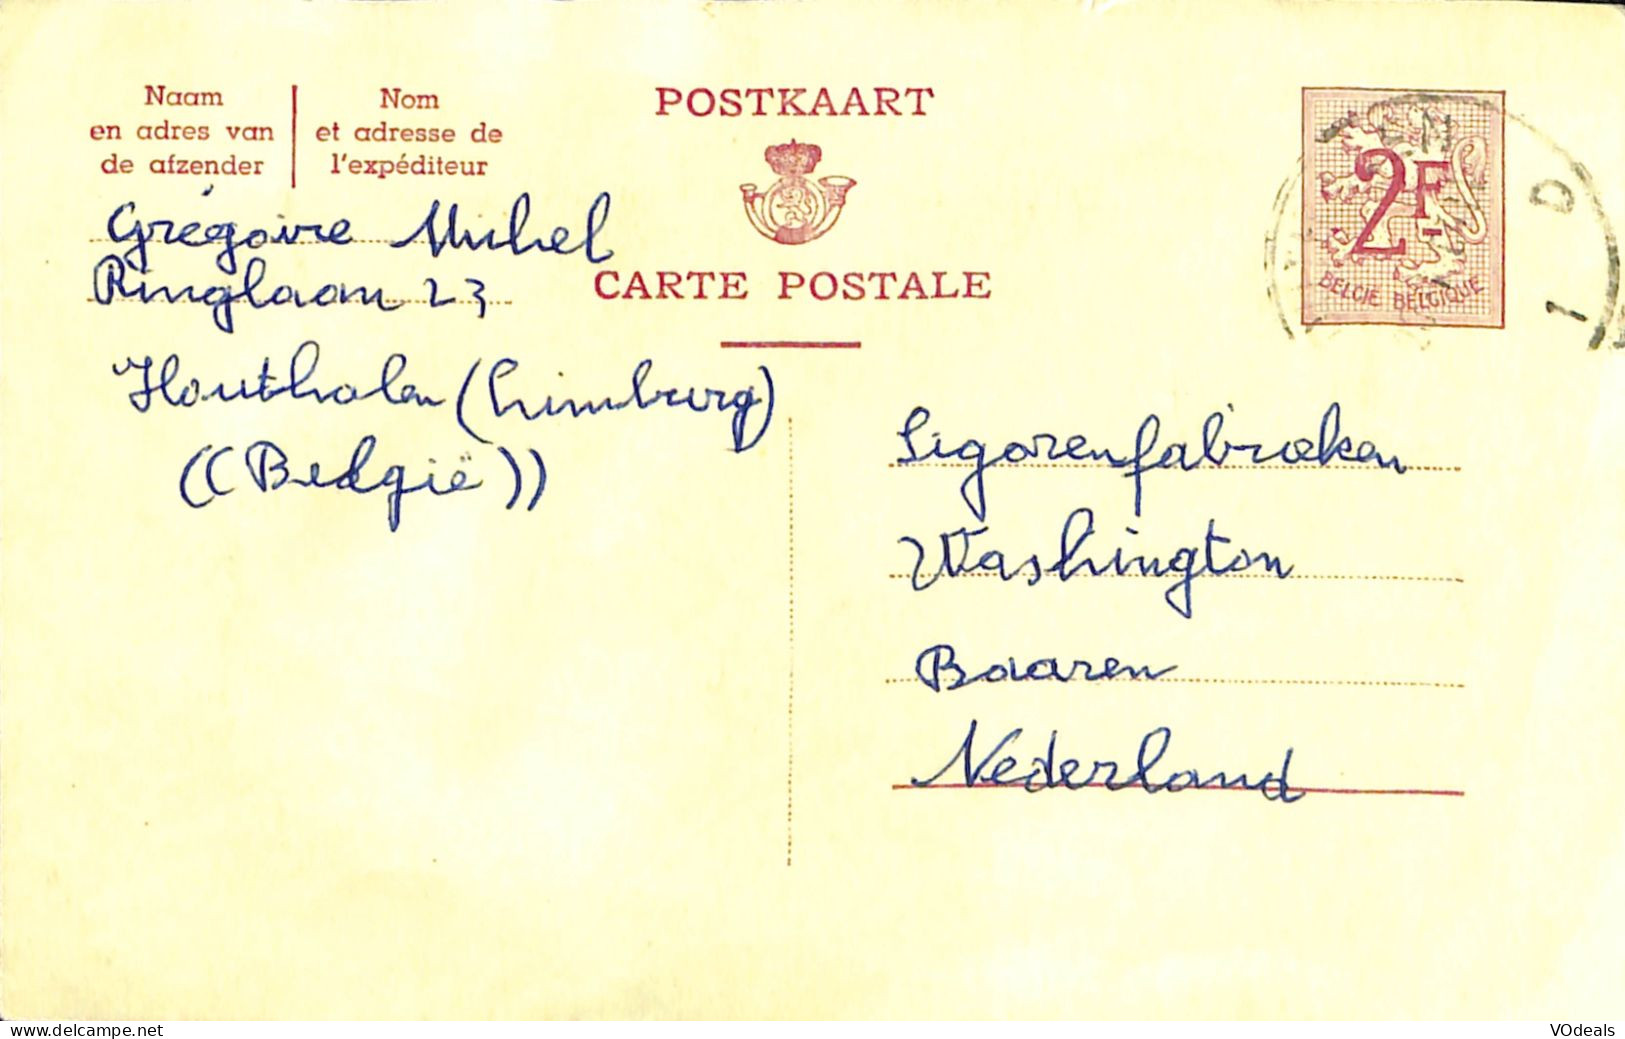 Naam
en adres van
de afzender
Nom
et adresse de
l'expéditeur
POSTKAART
CARTE POSTALE
2F
BELGIE BELGIQUE
D
1
Grégoire Michel
Ringlaan 23
Houthalen (Limburg)
((België))
Sigarenfabrieken
Washington
Baaren
Nederland
delcampe.net
VOdeals